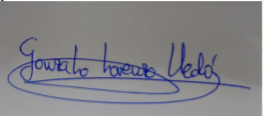 Gonzalo Lorenzo Lledó